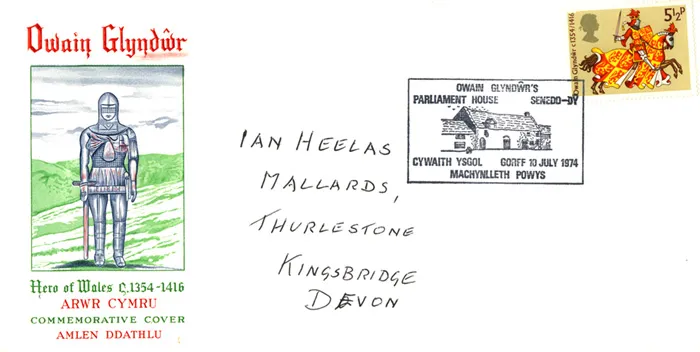 Owain Glyndŵr
Hero of Wales c.1354-1416
ARWR CYMRU
COMMEMORATIVE COVER
AMLEN DDATHLU
IAN HEELAS
MALLARDS,
THURLESTONE
KINGSBRIDGE
DEVON
OWAIN GLYNDŴR'S
PARLIAMENT HOUSE SENEDD-DY
CYWAITH YSGOL GORFF 10 JULY 1974
MACHYNLLETH POWYS
5½P
Owain Glyndwr c1354/1416